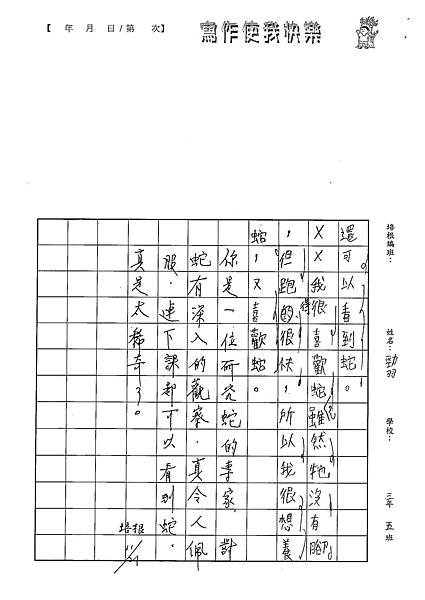 【 年 月 日/第 次】
寫作使我快樂
培根編班：
姓名：勁羽
學校：
三年 五班
還可以看到蛇。
ㄨㄨ我很喜歡蛇，雖然牠沒有腳
，但跑的得很快，所以我很想養
蛇，又喜歡蛇。
你是一位研究蛇的專家，對
蛇有深入的觀察，真令人佩
服，連下課都可以看到蛇，
真是太稀奇了。
培根